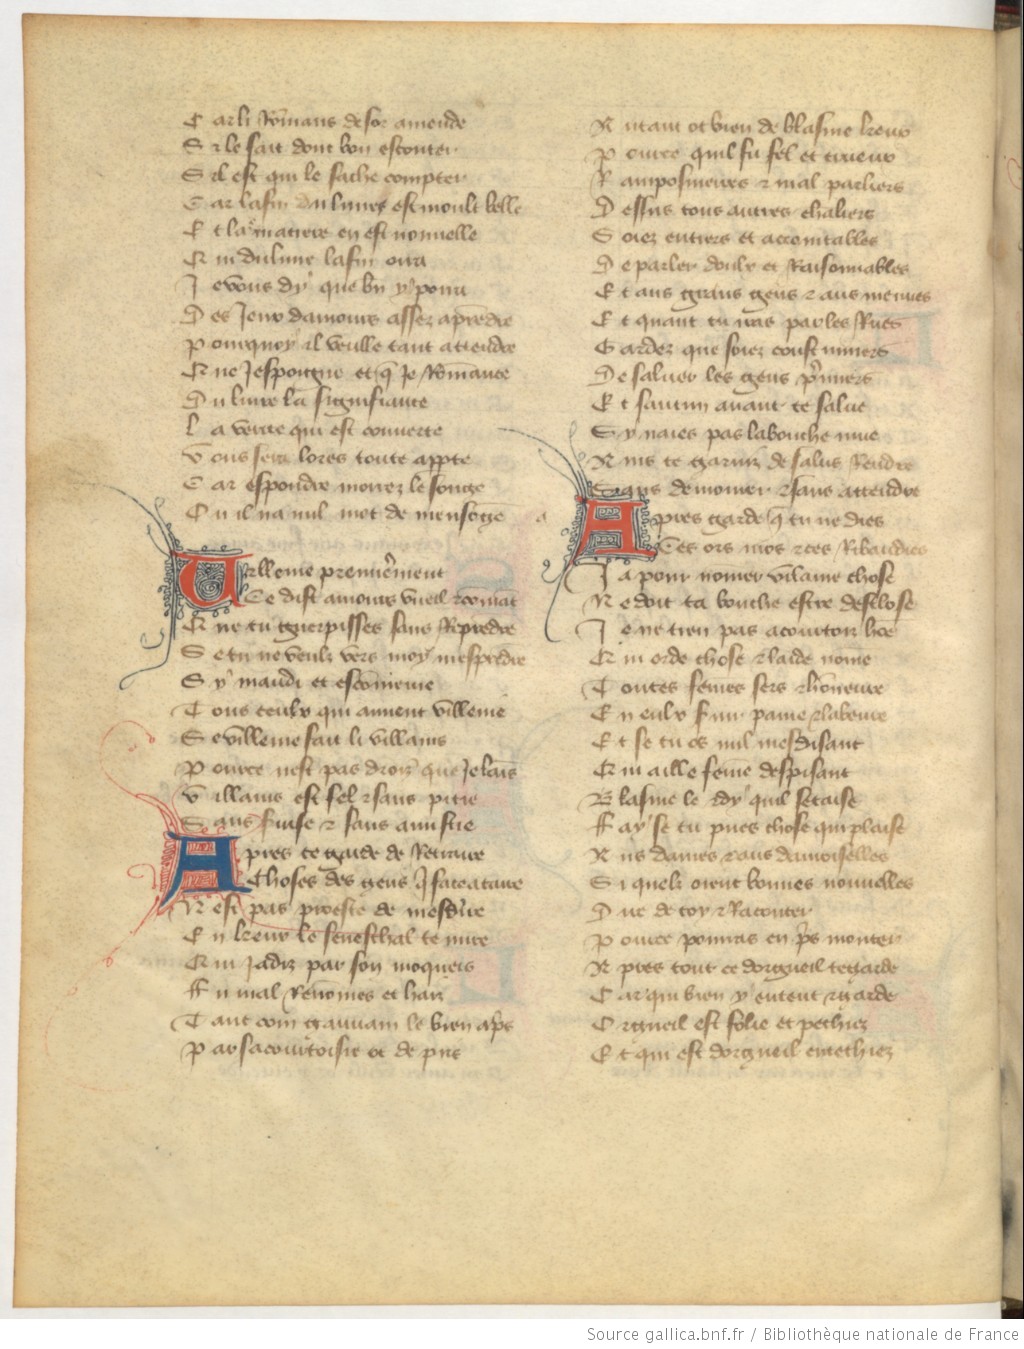 Car li Romans desor amende
Si le fait dont bon escouter
Sil est qui le sache compter
Car la fin du livres est moult belle
Et la matiere en est nouvelle
Qui du livre la fin orra
Je vous dy que bn y porra
Des Jeux damours assez aprēdre
Pourquoy il veulle tant attendre
Que Jespoigne et q̄ Je Romance
Du livre la signifiance
La verite qui est couverte
Vous sera lores toute appte
Car espondre morrez le songe
Ou il na nul mot de mensoge
Villenie premierement
Ce dist amours vueil
Que tu guerpisses sans Reprēdre
Se tu ne veulz vers moy mesprēdre
Sy maudi et escōmenie
Tous ceulx qui aiment villenie
Se villenie fait li villains
Pource nest pas droiz que Je lains
Villains est fel et sans pitie
Sans servise et sans amistie
Apres te garde de Retraire
Choses des gens q̄ face a taire
Nest pas proesse de mesdire
En kreux le seneschal te mire
Qui Jadiz par son moquers
Fu mal Renōmes et hair
Tant com gauvain le bien aprs
Par sa courtoisie ot de pris
Autant ot bien de blasme kreux
Pource quil fu fel et crueux
Ramposnierres et mal parliers
Dessus tous autres chaliers
Soiez entiers et accointables
De parler doulx et Raisonnables
Et aus grans gens et aus menues
Et quant tu vas par les Rues
Gardez que soiez coustumiers
De saluer les gens prmiers
Et saucun avant te salue
Sy naies pas la bouche mue
Ains te garniz de salus Rendre
Sans demorer et sans attendre
Apres garde q̄ tu ne dies
Ces ors mos et ces Ribaudies
Ja pour nomer vilaine chose
Ne doit ta bouche estre desclose
Je ne tien pas a courtoiz hōe
Qui orde chose et laide nōme
Toutes femes sers et hōneure
En eulx servir paine et labeure
Et se tu os nul mesdisant
Qui aille feme despisant
Blasme le et dy quil se taise
Fay se tu pues chose qui plaise
Aus dames et aus damoiselles
Si quelz oient bonnes nouvelles
Dire de toy et Raconter
Pource pourras en prs monter
Apres tout ce dorgueil te garde
Car qui bien y entent et garde
Orgueil est folie et pechiez
Et qui est dorgueil entechiez
Source gallica.bnf.fr / Bibliothèque nationale de France